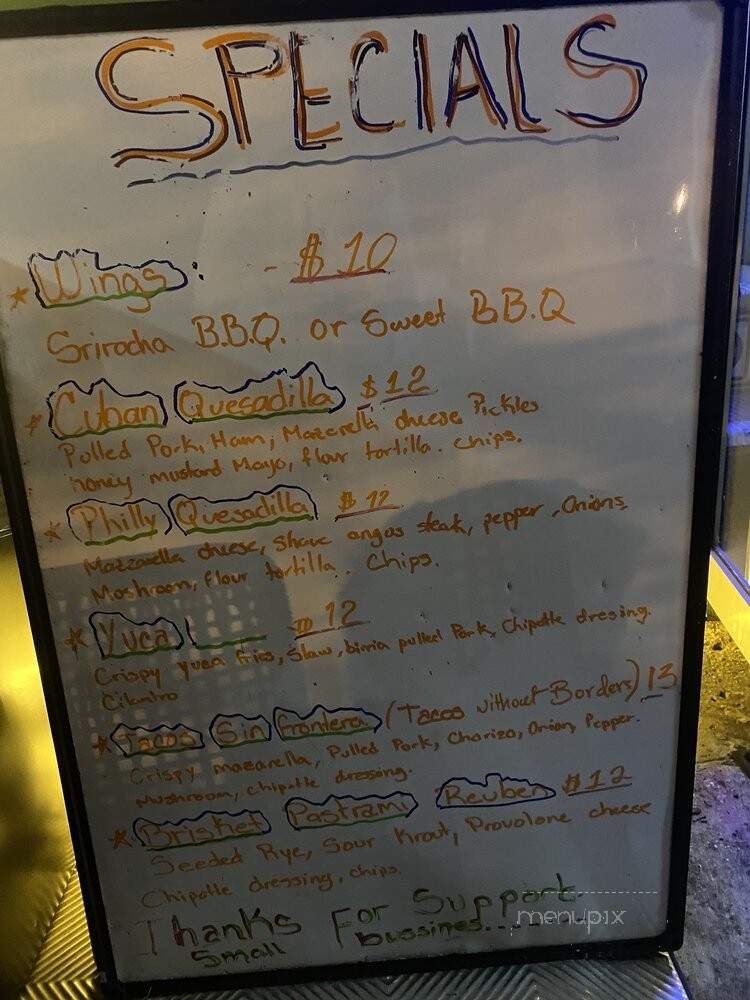 SPECIALS
Wings: - $10
Sriracha B.B.Q. or Sweet BB.Q
Cuban Quesadilla $12
Pulled Pork, Ham, Mazerella cheese Pickles
honey mustard Mayo, flour tortilla. chips.
Philly Quesadilla $12
Mazzarella cheese, Shave angos steak, pepper, Onions,
Moshroom, flour tortilla.. Chips.
Yuca 12
Crispy yuca fries, Slaw, birria pulled Pork, Chipotle dresing.
Cilantro
Tacos Sin frontera (Tacos without Borders) 13
Crispy mazarella, Pulled Pork, Chorizo, Onion, Pepper.
Mushroom, chipotle dressing.
Brisket Pastrami Reuben $12
Seeded Rye, Sour Krout, Provolone cheese
Chipotle dressing, chips.
Thanks For Support
Small bussines.....
menupix